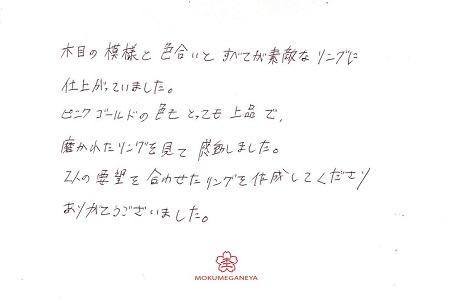 木目の模様と色合いとすべてが素敵なリングに
仕上がっていました。
ピンクゴールドの色もとっても上品で、
磨かれたリングを見て感動しました。
2人の要望を合わせたリングを作成してくださり
ありがとうございました。
MOKUMEGANEYA